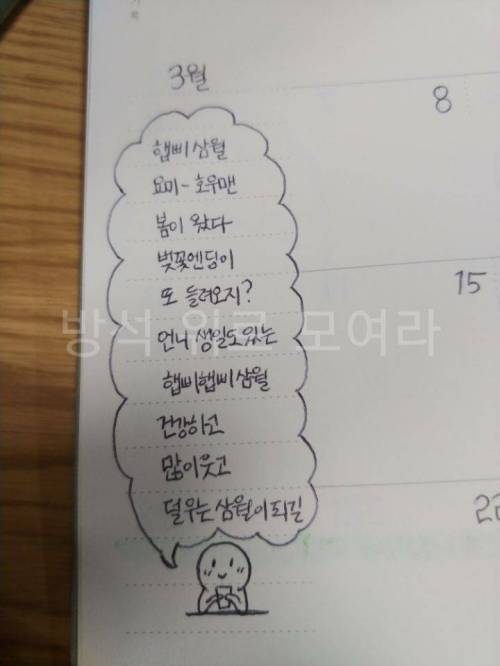 3월
햅삐 삼월
요미~ 호우맨
봄이 왔다
벚꽃엔딩이
또 들려오지?
언니 생일도 있는
햅삐햅삐 삼월
건강하고
많이 웃고
덜 우는 삼월이 되길
8
15
22
방석 위로 모여라